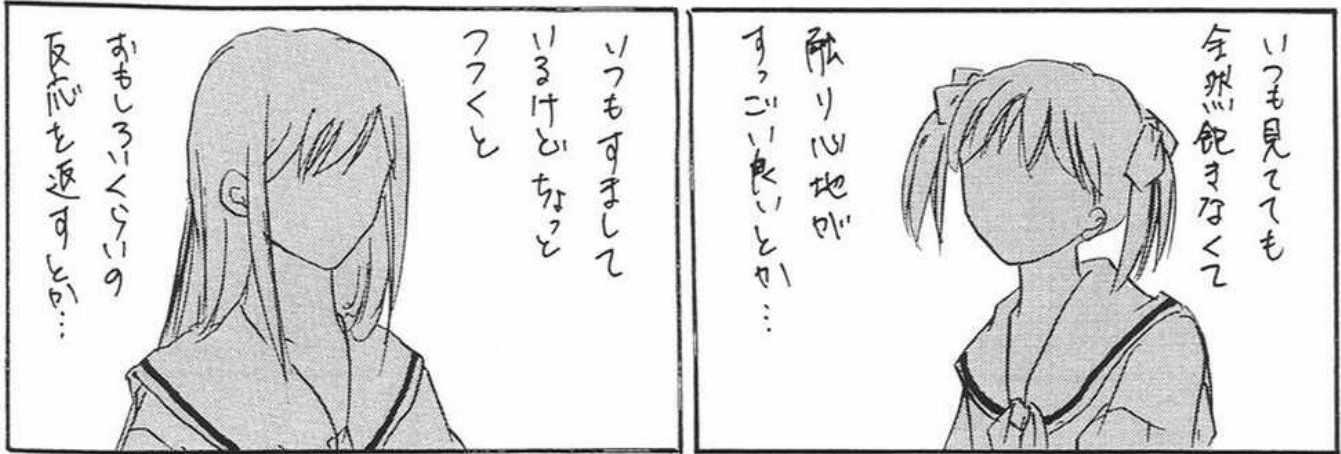 いつも見てても
全然飽きなくて
触り心地が
すっごい良いとか…
いつもすまして
いるけどちょっと
つつくと
おもしろいくらいの
反応を返すとか…